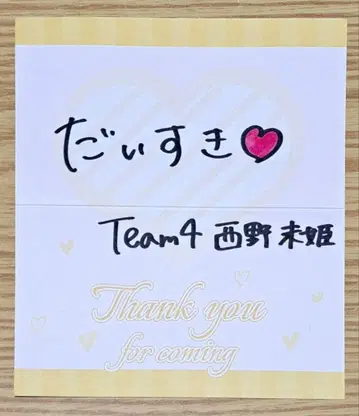 だいすき
Team4 西野 未姫
Thank you
for coming